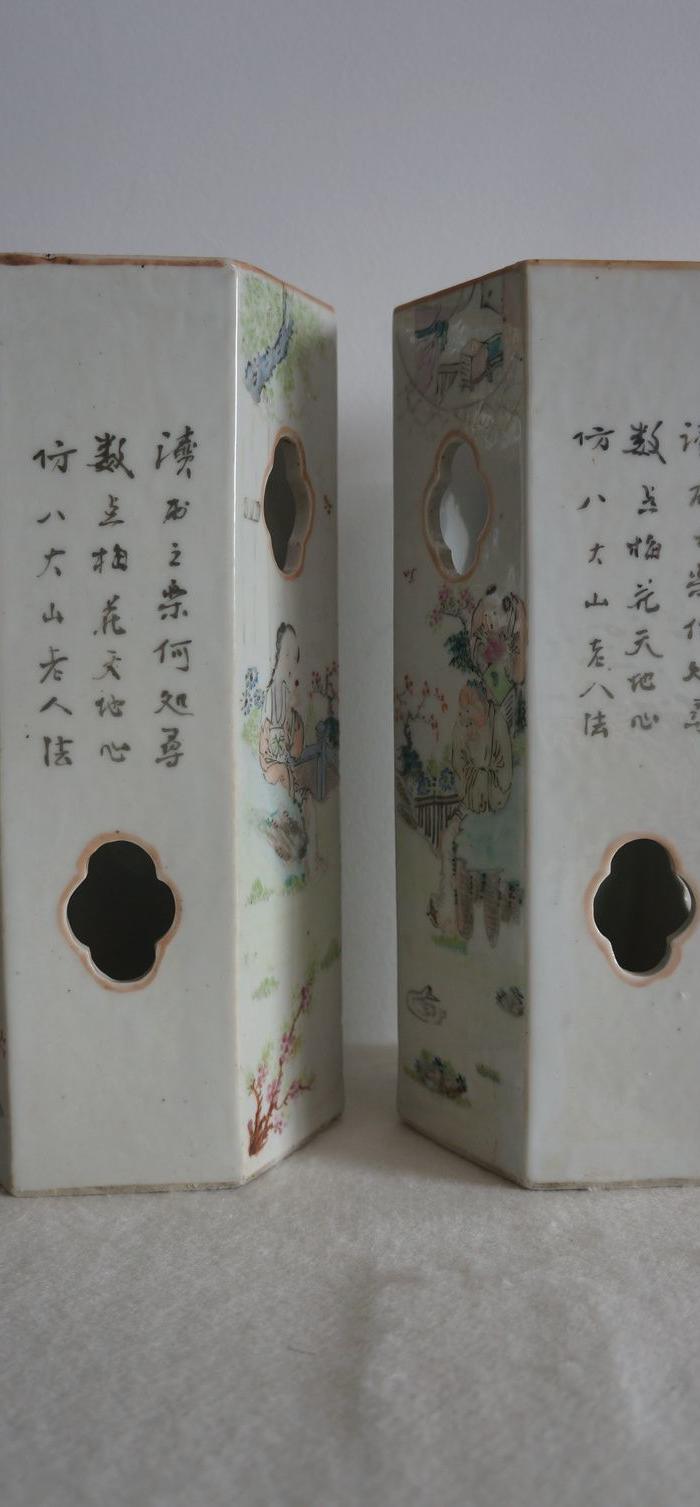 讀而之樂何処尋
数点梅花天地心
仿八大山老人法
数点梅花天地心
仿八大山老人法